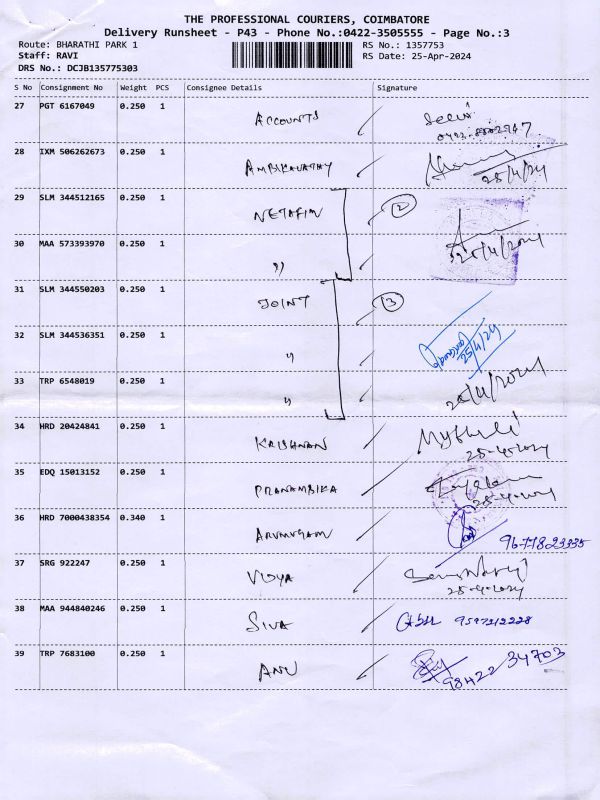 THE PROFESSIONAL COURIERS, COIMBATORE
Delivery Runsheet - P43 - Phone No.:0422-3505555 - Page No.:3
Route: BHARATHI PARK 1 RS No.: 1357753
Staff: RAVI RS Date: 25-Apr-2024
DRS No.: DCJB135775303
S No Consignment No Weight PCS Consignee Details Signature
27 PGT 6167049 0.250 1 ACCOUNTS
28 IXM 506262673 0.250 1 AMBIKAVATHY 25/4/24
29 SLM 344512165 0.250 1 NETAFIM 2
30 MAA 573393970 0.250 1 " 25/4/2024
31 SLM 344550203 0.250 1 JOINT 3
32 SLM 344536351 0.250 1 "
33 TRP 6548019 0.250 1 " 25/4/2024
34 HRD 20424841 0.250 1 KRISHNAN Mythili 25-4-2024
35 EDQ 15013152 0.250 1 PRANAMBIKA 25-4-2024
36 HRD 7000438354 0.340 1 ARUMUGAM 9677823335
37 SRG 922247 0.250 1 VIDYA 25-4-2024
38 MAA 944840246 0.250 1 SIVA 9597212228
39 TRP 7683100 0.250 1 ANU 98422 34703